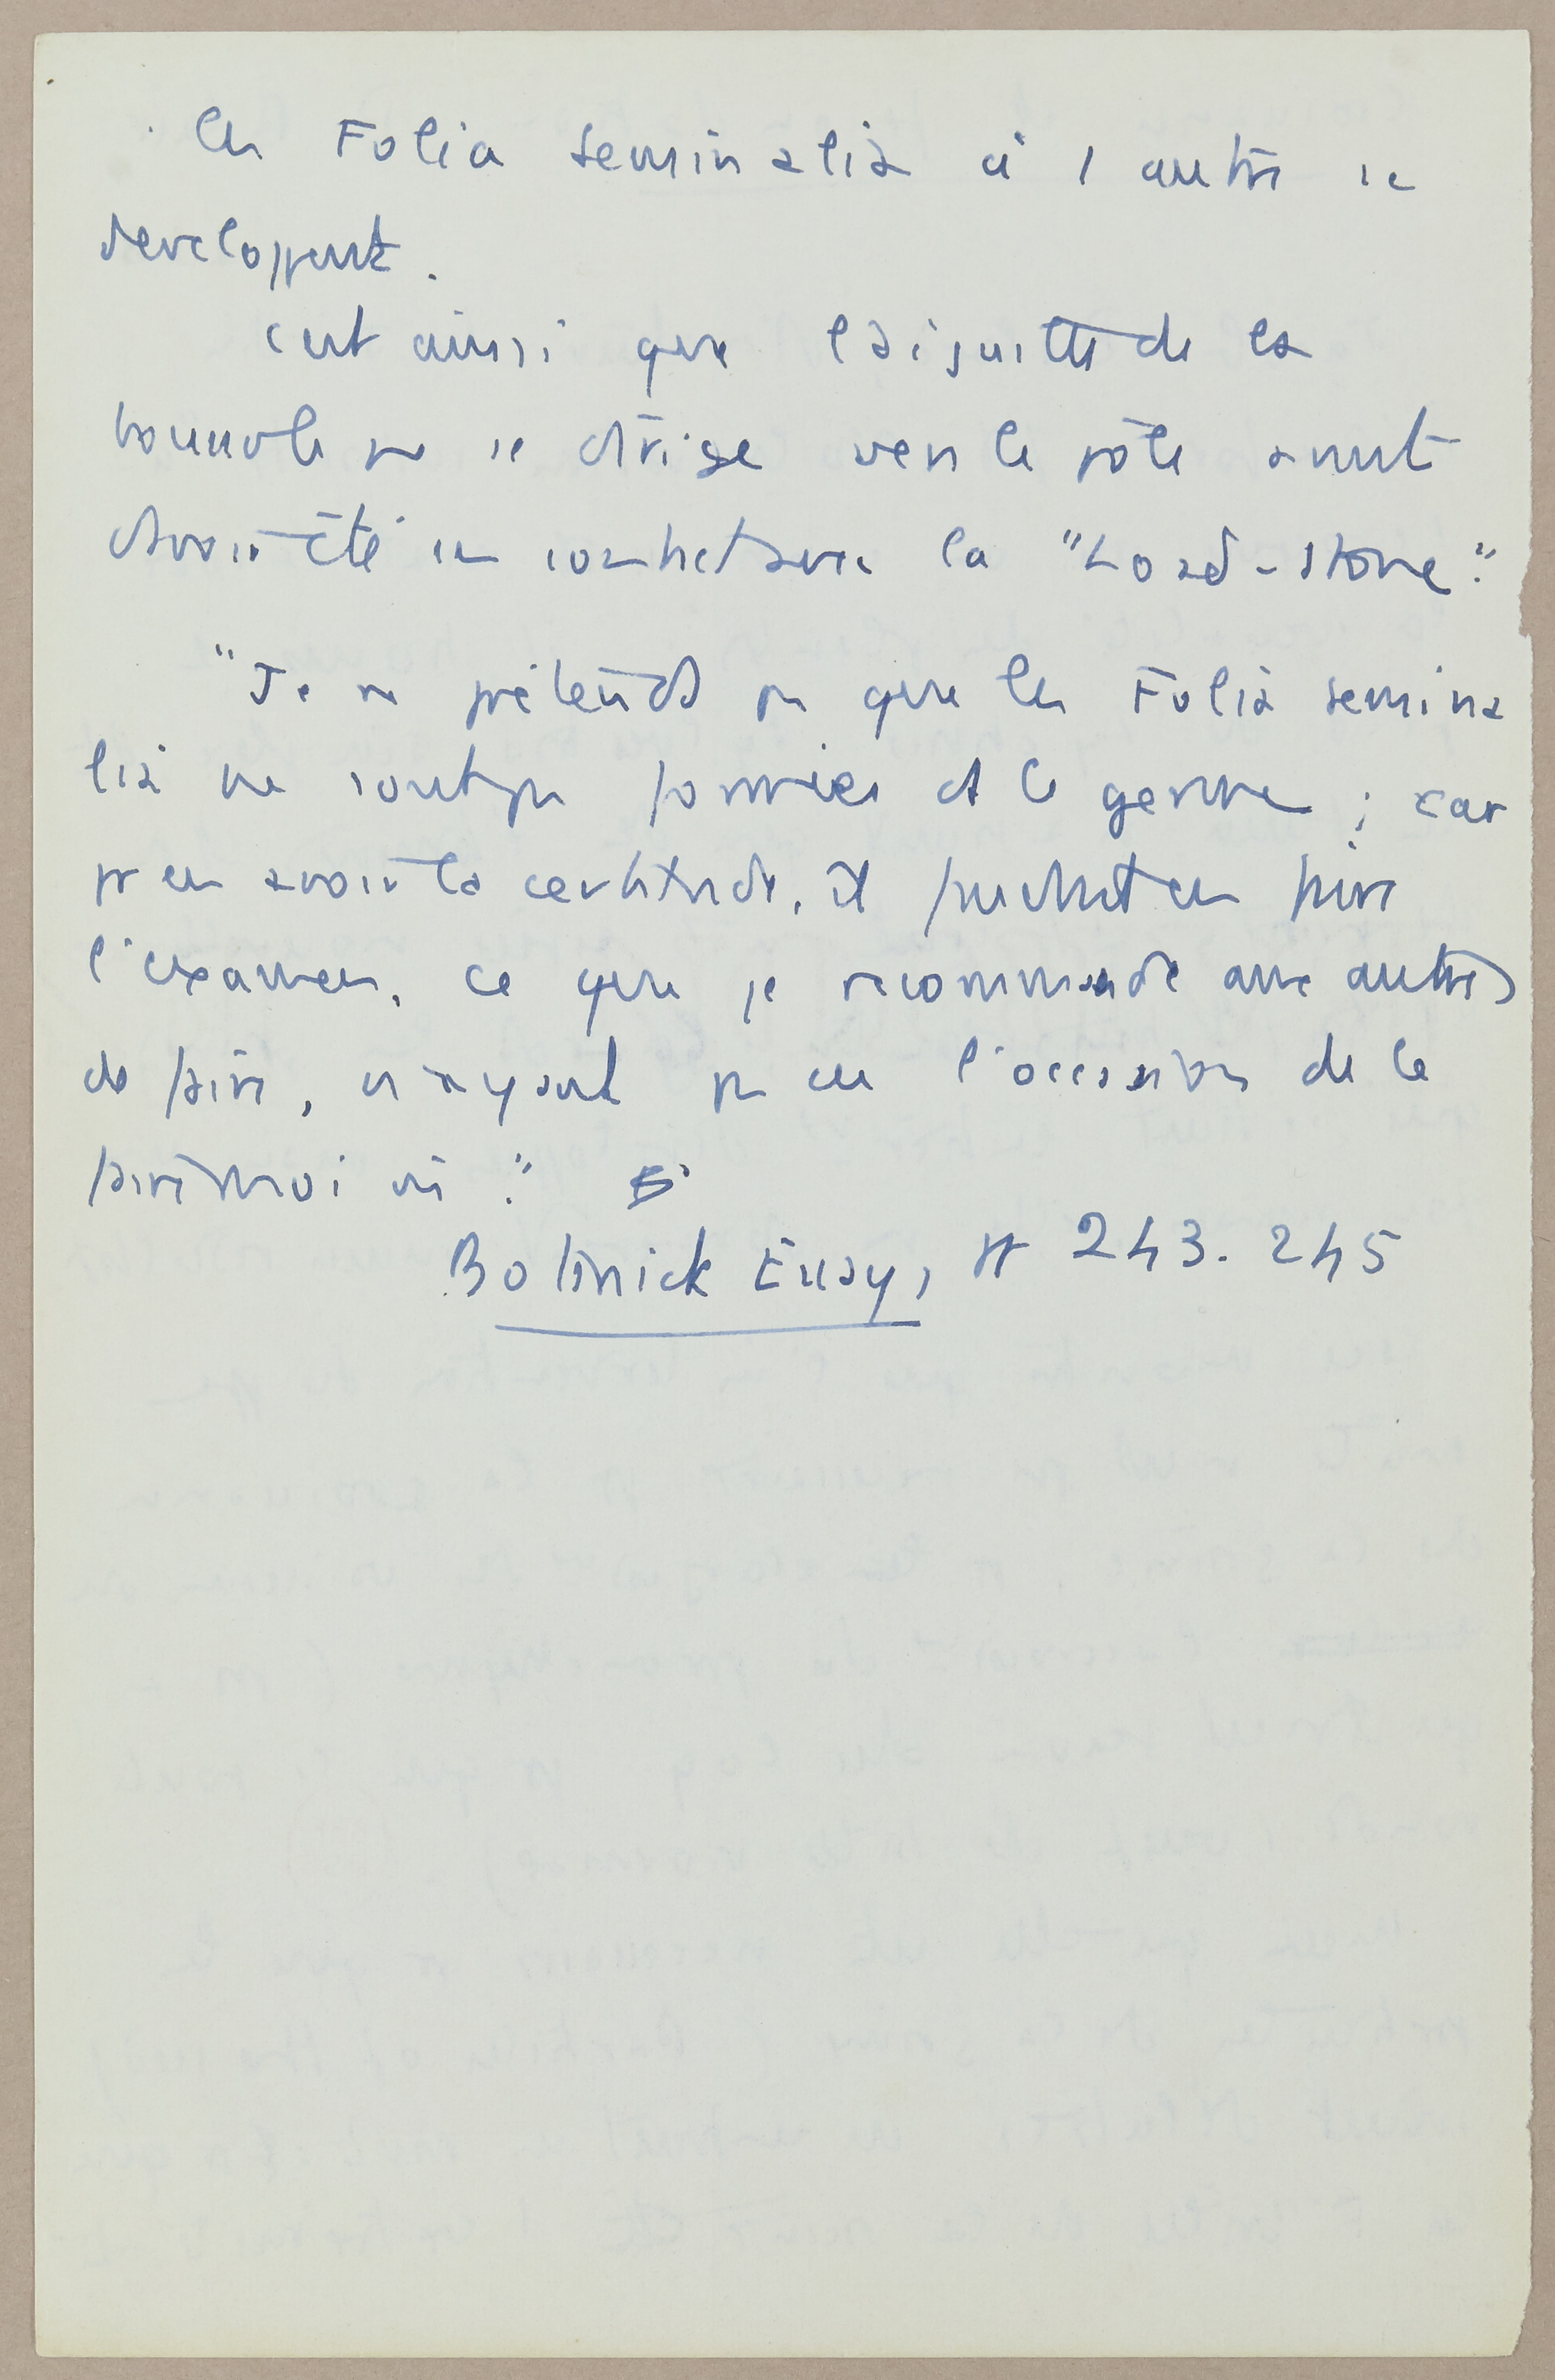 les Folia seminalia et l'autre se
developpent.
c'est ainsi que l'aiguille de la
boussole ne se dirige vers le pôle avant
d'avoir été en contact avec la "Load-stone".
"Je ne prétends pas que les Folia semina
lia ne sont pas formées ds le germe ; car
pr en avoir la certitude, il faudrait en faire
l'examen, ce que je recommande aux autres
de faire, n'ayant pas eu l'occasion de le
faire moi mê".
Botanick Essay, pp 243. 245